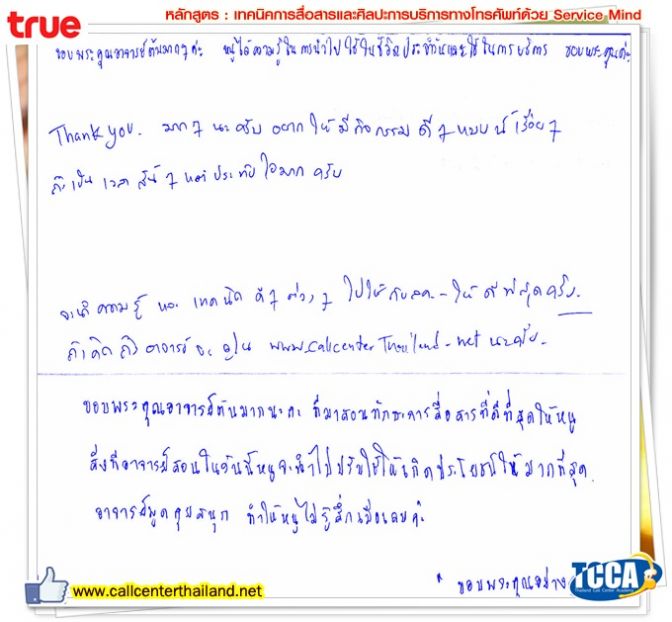 true
หลักสูตร : เทคนิคการสื่อสารและศิลปะการบริการทางโทรศัพท์ด้วย Service Mind
ขอบพระคุณอาจารย์ต้นมากๆค่ะ หนูได้ความรู้ในการนำไปใช้ในชีวิตประจำวันและใช้ในการบริการ ขอบพระคุณค่ะ
Thank you. มากๆ นะครับ อยากให้มีกิจกรรม ดีๆ แบบนี้ เรื่อยๆ
ถึงเป็น เวลา สั้นๆ แต่ประทับใจมาก ครับ
จะนำความรู้ และ เทคนิค ดีๆ ต่างๆ ไปใช้กับ ให้ดีที่สุดครับ.
ถ้าคิดถึงอาจารย์ จะ www.callcenterThailand.net นะครับ.
ขอบพระคุณอาจารย์ต้นมากนะคะ ที่มาสอนทักษะการสื่อสารที่ดีที่สุดให้หนู
สิ่งที่อาจารย์สอนในวันนี้หนูจะนำไปปรับใช้ให้เกิดประโยชน์ให้มากที่สุด.
อาจารย์พูดคุยสนุก ทำให้หนูไม่รู้สึกเบื่อเลยค่ะ
* ขอบพระคุณอย่าง
www.callcenterthailand.net
TCCA
Thailand Call Center Academy